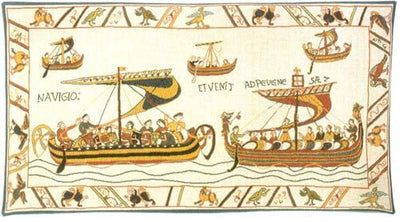 NAVIGIO:
ET VENIT AD PEVENE SÆ